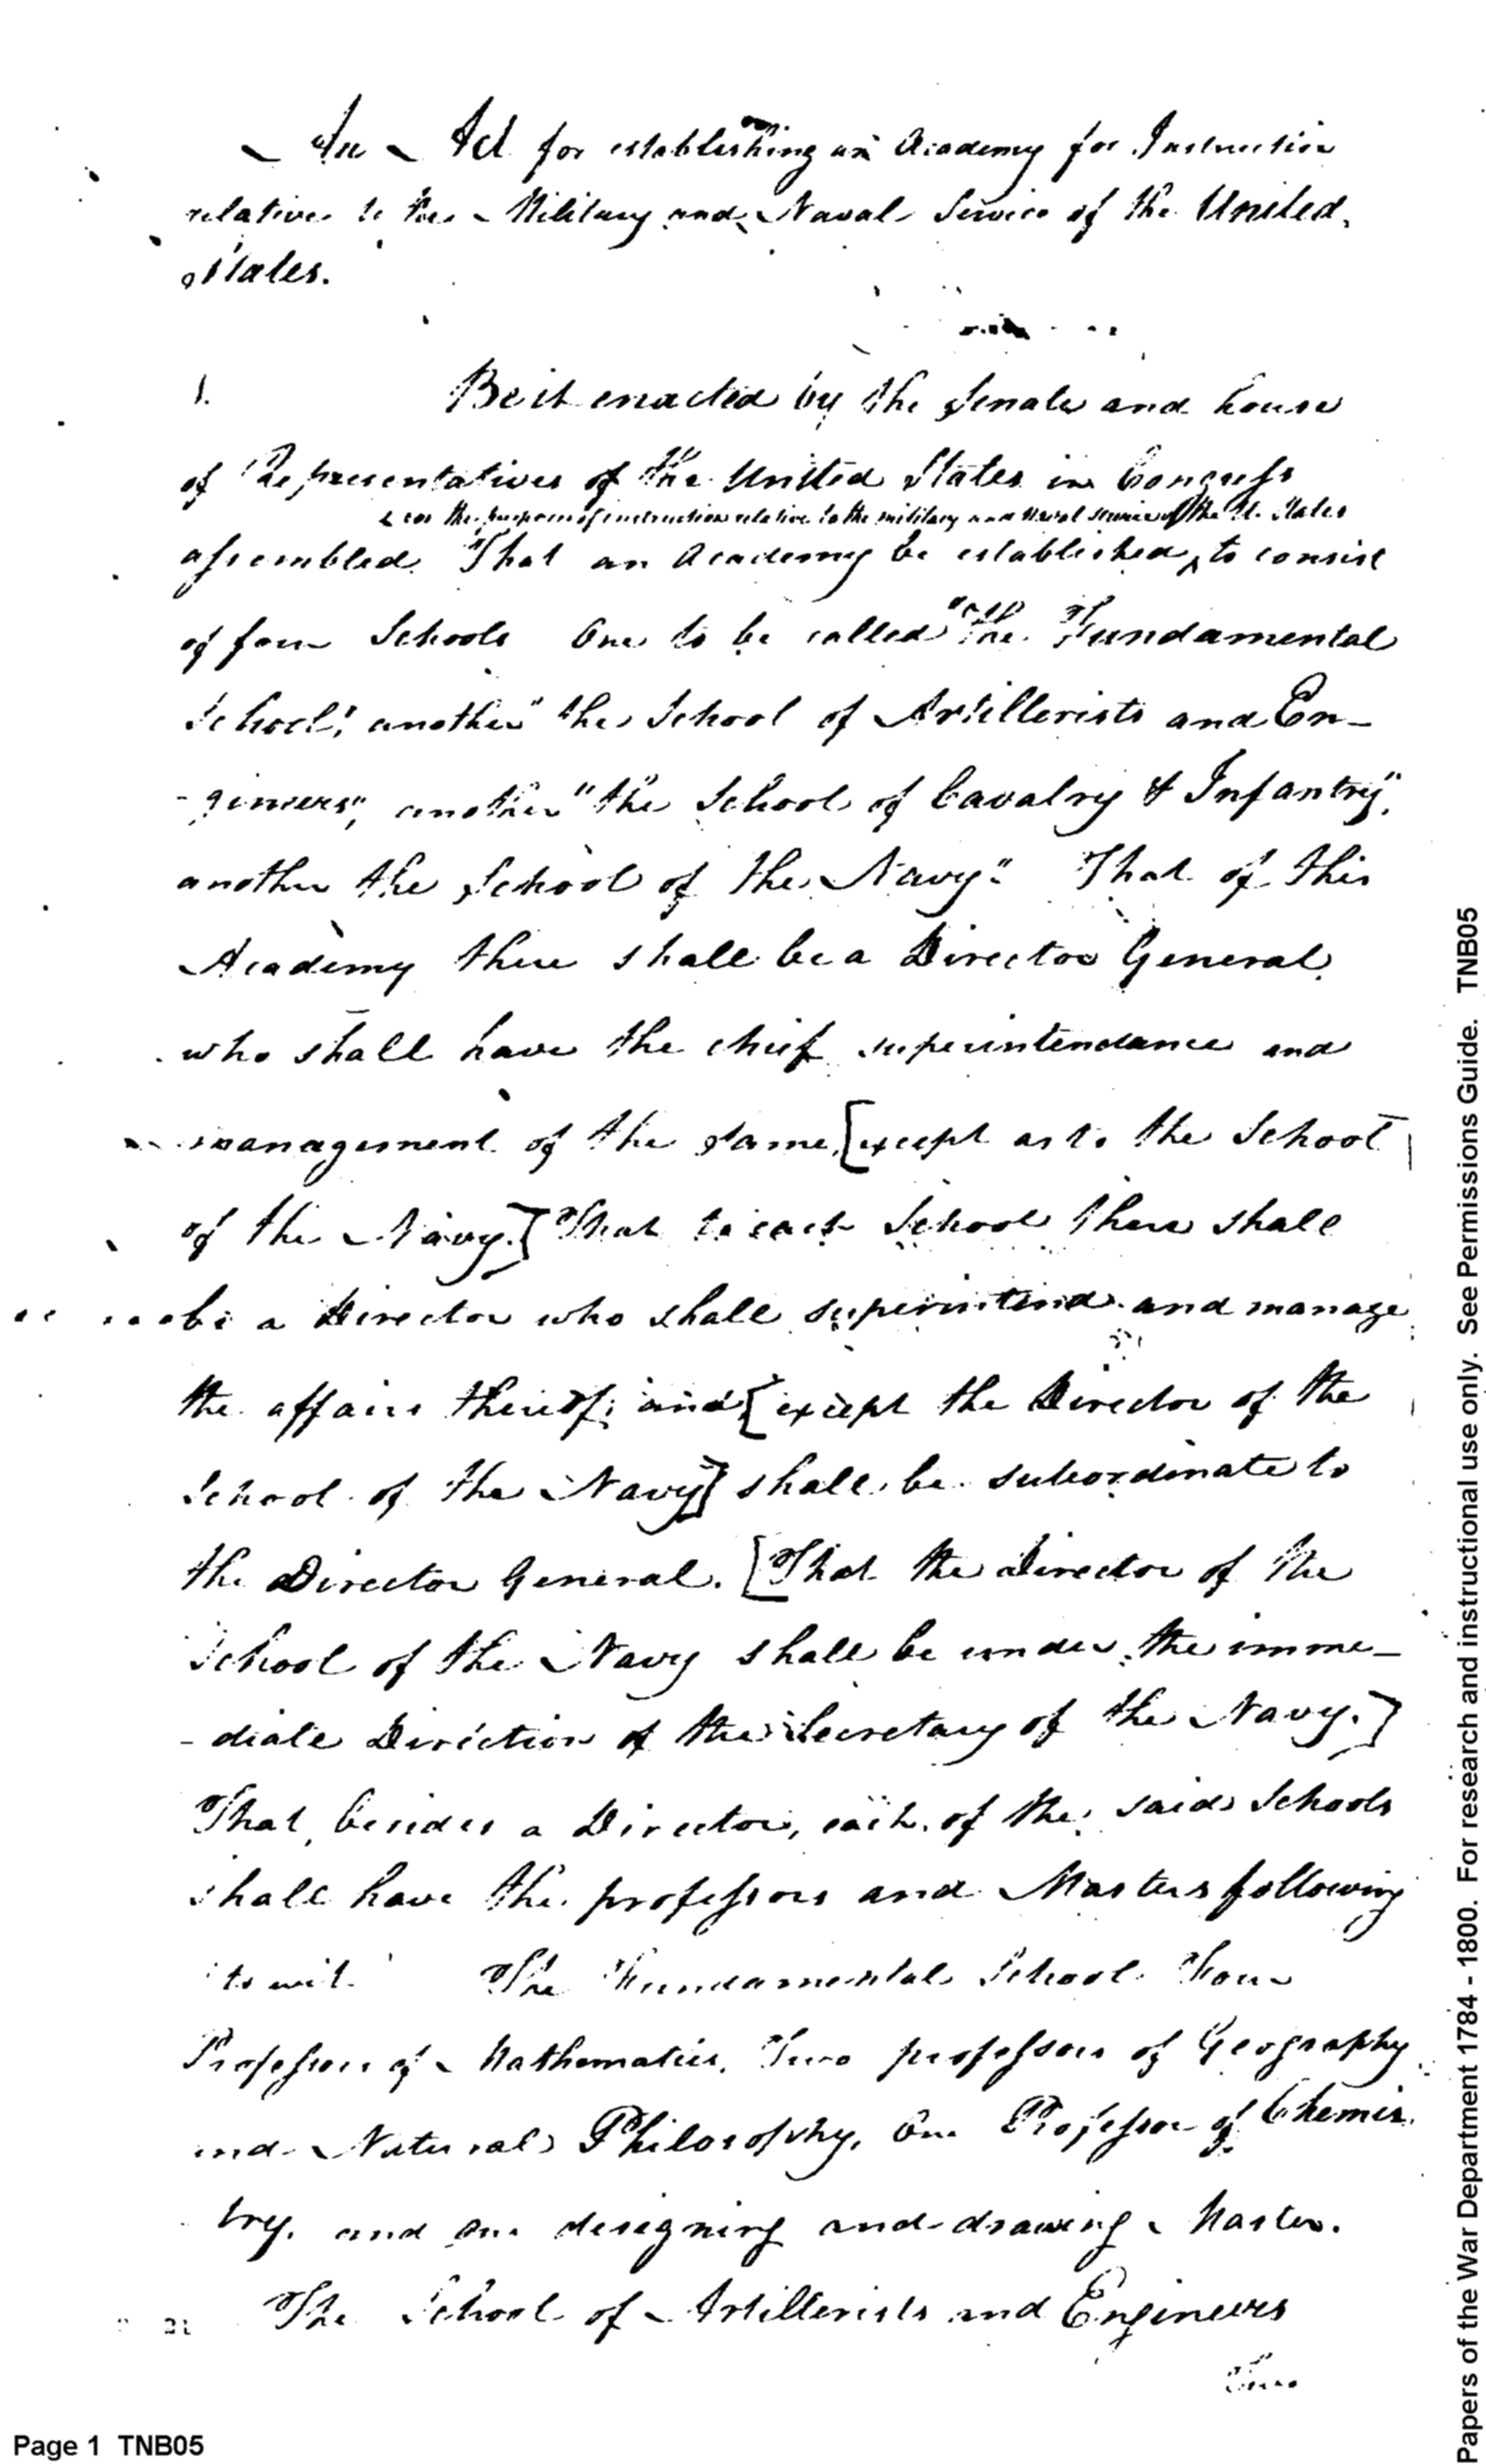 An Act for establishing an Academy for Instruction
relative to the Military and Naval Service of the United
States.
1. Be it enacted by the Senate and house
of Representatives of the United States in Congress
for the purpose of instruction relative to the military and Naval service of the U. States
assembled That an Academy be established, to consist
of four Schools One to be called "The Fundamental
School", another "the School of Artillerists and En-
-gineers", another "the School of Cavalry & Infantry",
another the School of the Navy" That of this
Academy there shall be a Director General
who shall have the chief superintendance and
management of the same, [except as to the School
of the Navy.] That to each School there shall
be a Director who shall superintend and manage
the affairs thereof; and [except the Director of the
School of the Navy] shall be subordinate to
the Director General. [That the Director of the
School of the Navy shall be under the imme-
-diate Direction of the Secretary of the Navy.]
That, besides a Director, each of the said Schools
shall have the professors and Masters following
to wit. The Fundamental School Four
Professors of Mathematics, Two professors of Geography
and Natural Philosophy, One Professor of Chemis
try, and one designing and drawing Master.
The School of Artillerists and Engineers
Two
Page 1 TNB05
Papers of the War Department 1784 - 1800. For research and instructional use only. See Permissions Guide. TNB05